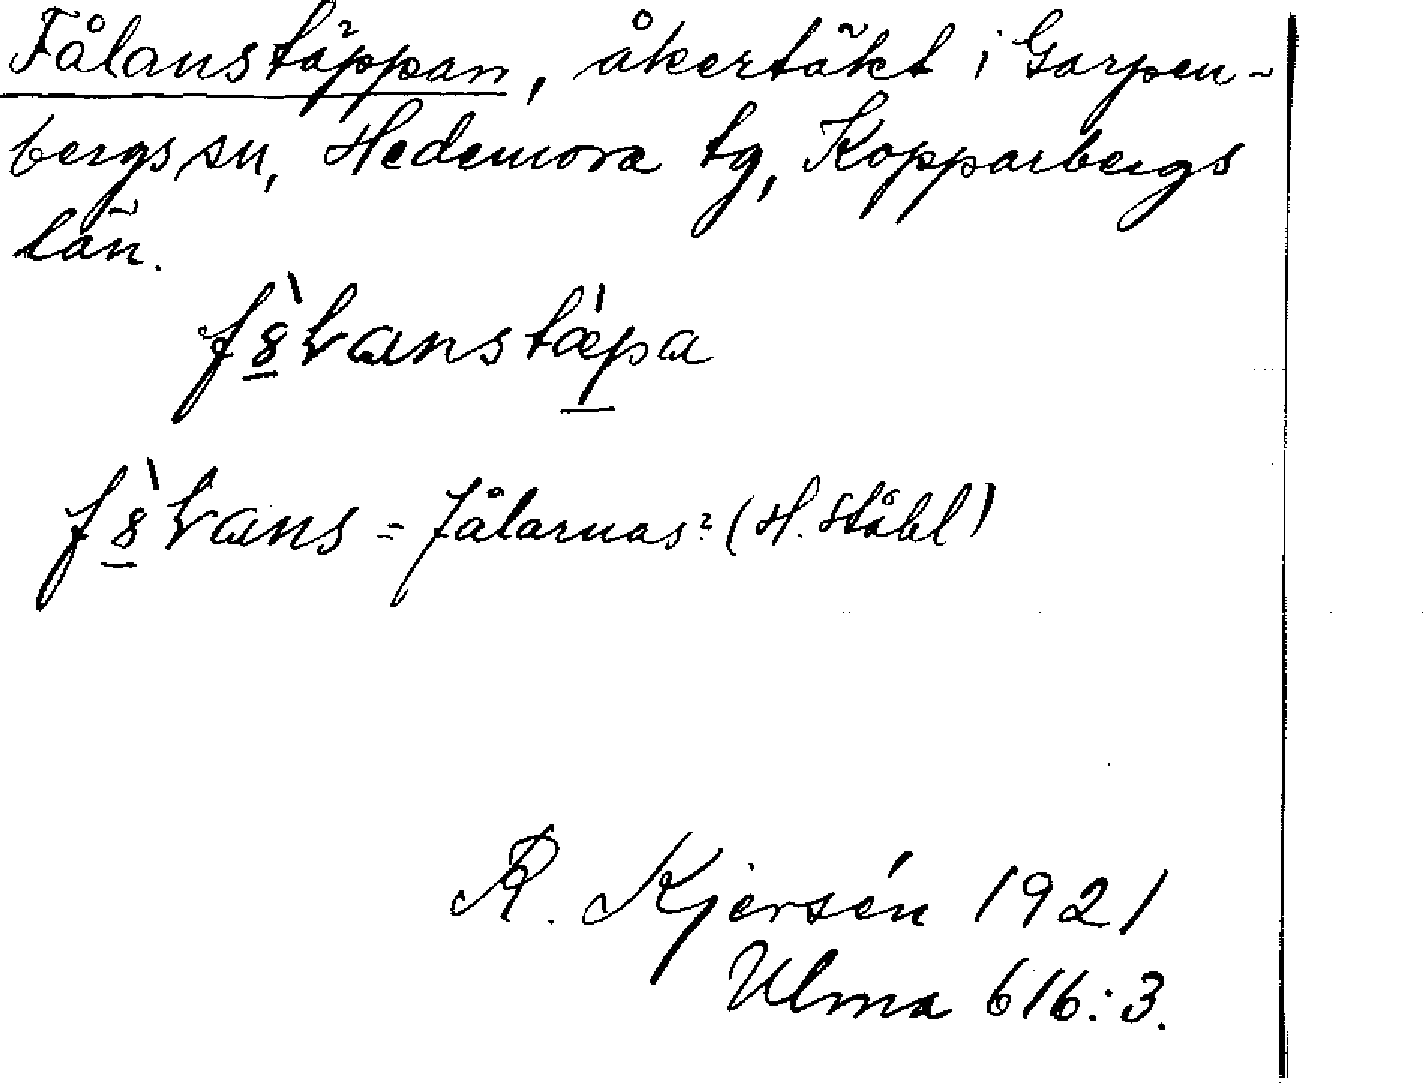 Fålanstäppan, åkertäkt i Garpen-
bergs sn, Hedemora tg, Kopparbergs
län.
fȣ̀ɬanstæ̀pa
fȣ̀ɬans = fålarnas? (H. Ståhl)
R. Kjersén 1921
Ulma 616:3.